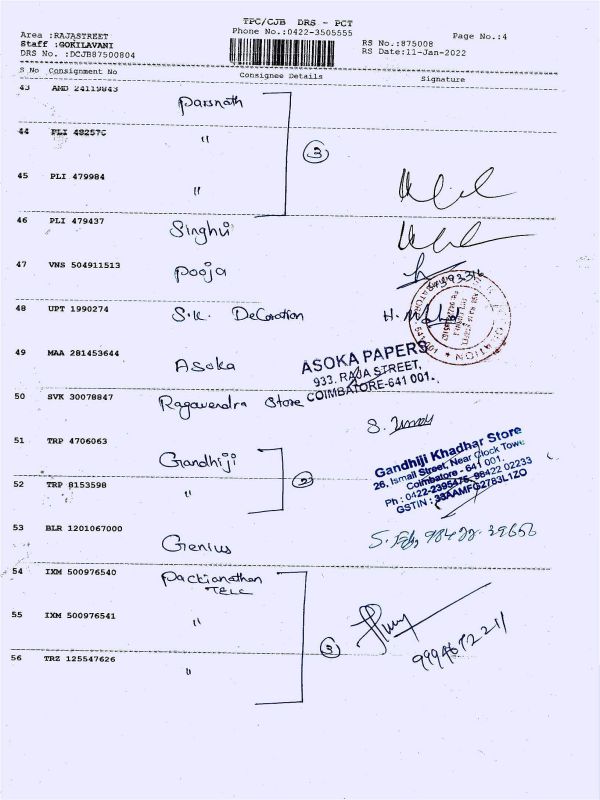 TPC/CJB DRS - PCT
Area :RAJASTREET
Phone No.:0422-3505555
Page No.:4
Staff :GOKILAVANI
RS No.:875008
DRS No. :DCJB87500804
RS Date:11-Jan-2022
S No Consignment No Consignee Details Signature
43 AMD 24119843 Parsnath
44 PLI 482576 "
3
45 PLI 479984 "
46 PLI 479437 Singhvi
47 VNS 504911513 Pooja
48 UPT 1990274 S.K. Decoration
49 MAA 281453644 Asoka
ASOKA PAPERS
933, RAJA STREET,
COIMBATORE-641 001.
50 SVK 30078847 Ragavendra Store
51 TRP 4706063 Gandhiji
Gandhiji Khadhar Store
26, Ismail Street, Near Clock Tower
Coimbatore - 641 001.
Ph : 0422-2395475, 98422 02233
GSTIN : 33AAMFG2783L1ZO
52 TRP 8153598 "
2
53 BLR 1201067000 Genius
54 IXM 500976540 Packianathan
TELC
55 IXM 500976541 "
3
56 TRZ 125547626 "